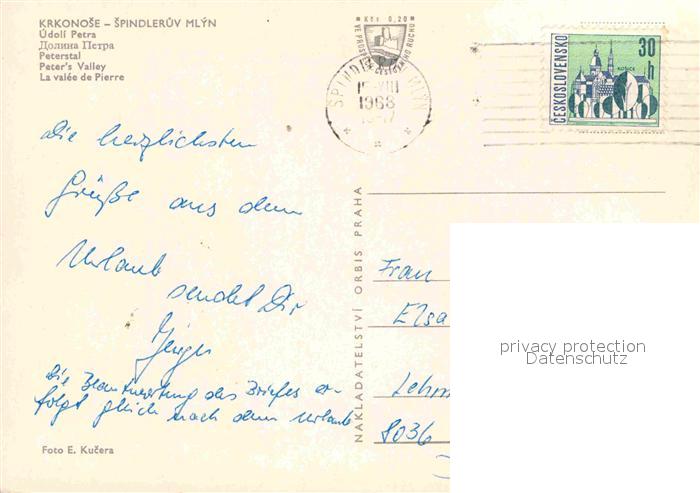 KRKONOŠE – ŠPINDLERŮV MLÝN
Údolí Petra
Долина Петра
Peterstal
Peter's Valley
La valée de Pierre
Kčs 0,20
VE PROSPĚCH CESTOVNÍHO RUCHU
ŠPINDLERŮV MLÝN
VIII
1968
ČESKOSLOVENSKO
30 h
KOŠICE
Die herzlichsten
Grüße aus dem
Urlaub
sendet Dir
Die Beantwortung des Briefes er-
folgt gleich nach dem Urlaub
Foto E. Kučera
NAKLADATELSTVÍ ORBIS PRAHA
Frau
Elsa
Lehm
8036
privacy protection
Datenschutz